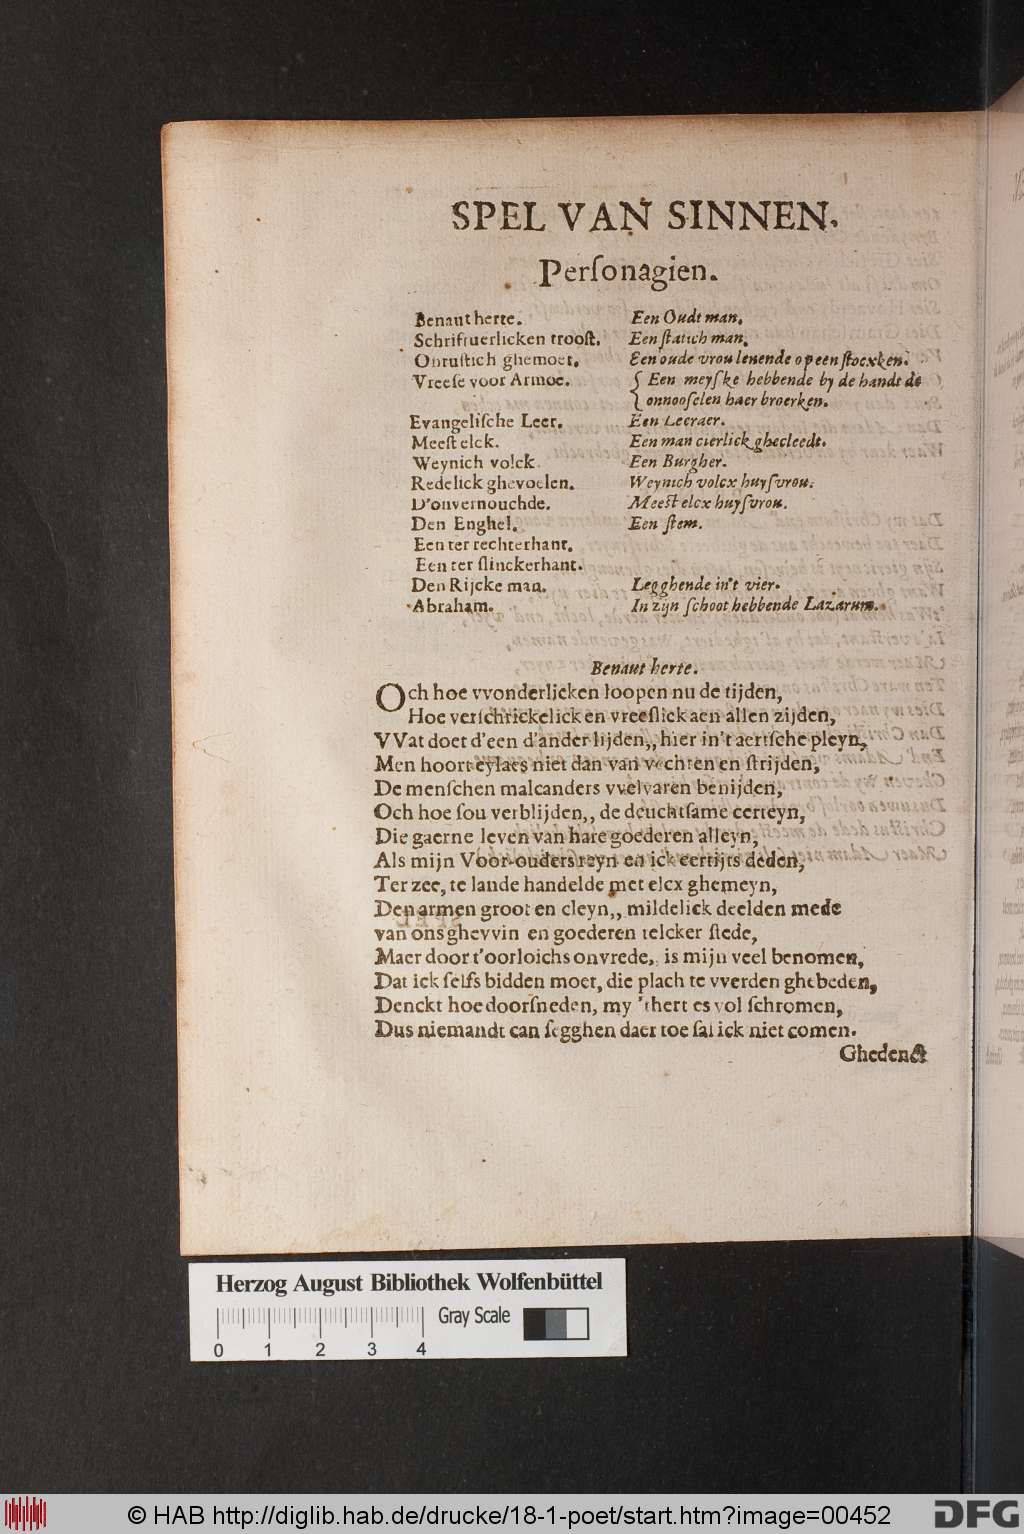 SPEL VAN SINNEN.
Perſonagien.
Benaut herte. Een Oudt man.
Schriftuerlicken trooſt. Een ſtatich man.
Onruſtich ghemoet. Een oude vrou lenende op een ſtocxken.
Vreeſe voor Armoe. { Een meyſke hebbende by de handt de
onnooſelen haer broerken.
Evangeliſche Leer. Een Leeraer.
Meeſt elck. Een man cierlick ghecleedt.
Weynich volck. Een Burgher.
Redelick ghevoelen. Weynich volcx huyſvrou.
D'onvernouchde. Meeſt elcx huyſvrou.
Den Enghel. Een ſtem.
Een ter rechterhant.
Een ter ſlinckerhant.
Den Rijcke man. Legghende in't vier.
Abraham. In zijn ſchoot hebbende Lazarum.
Benaut herte.
Och hoe vvonderlicken loopen nu de tijden,
Hoe verſchrickelick en vreeſlick aen allen zijden,
VVat doet d'een d'ander lijden,, hier in't aertſche pleyn,
Men hoort eylaes niet dan van vechten en ſtrijden,
De menſchen malcanders vvelvaren benijden,
Och hoe ſou verblijden,, de deuchtſame certeyn,
Die gaerne leven van hare goederen alleyn,
Als mijn Voor-ouders reyn en ick eertijts deden,
Ter zee, te lande handelde met elcx ghemeyn,
Den armen groot en cleyn,, mildelick deelden mede
van ons ghevvin en goederen telcker ſtede,
Maer door t'oorloichs onvrede,, is mijn veel benomen,
Dat ick ſelfs bidden moet, die plach te vverden ghebeden,
Denckt hoe doorſneden, my 'thert es vol ſchromen,
Dus niemandt can ſegghen daer toe ſal ick niet comen.
Ghedenct
Herzog August Bibliothek Wolfenbüttel
Gray Scale
0 1 2 3 4
© HAB http://diglib.hab.de/drucke/18-1-poet/start.htm?image=00452
DFG